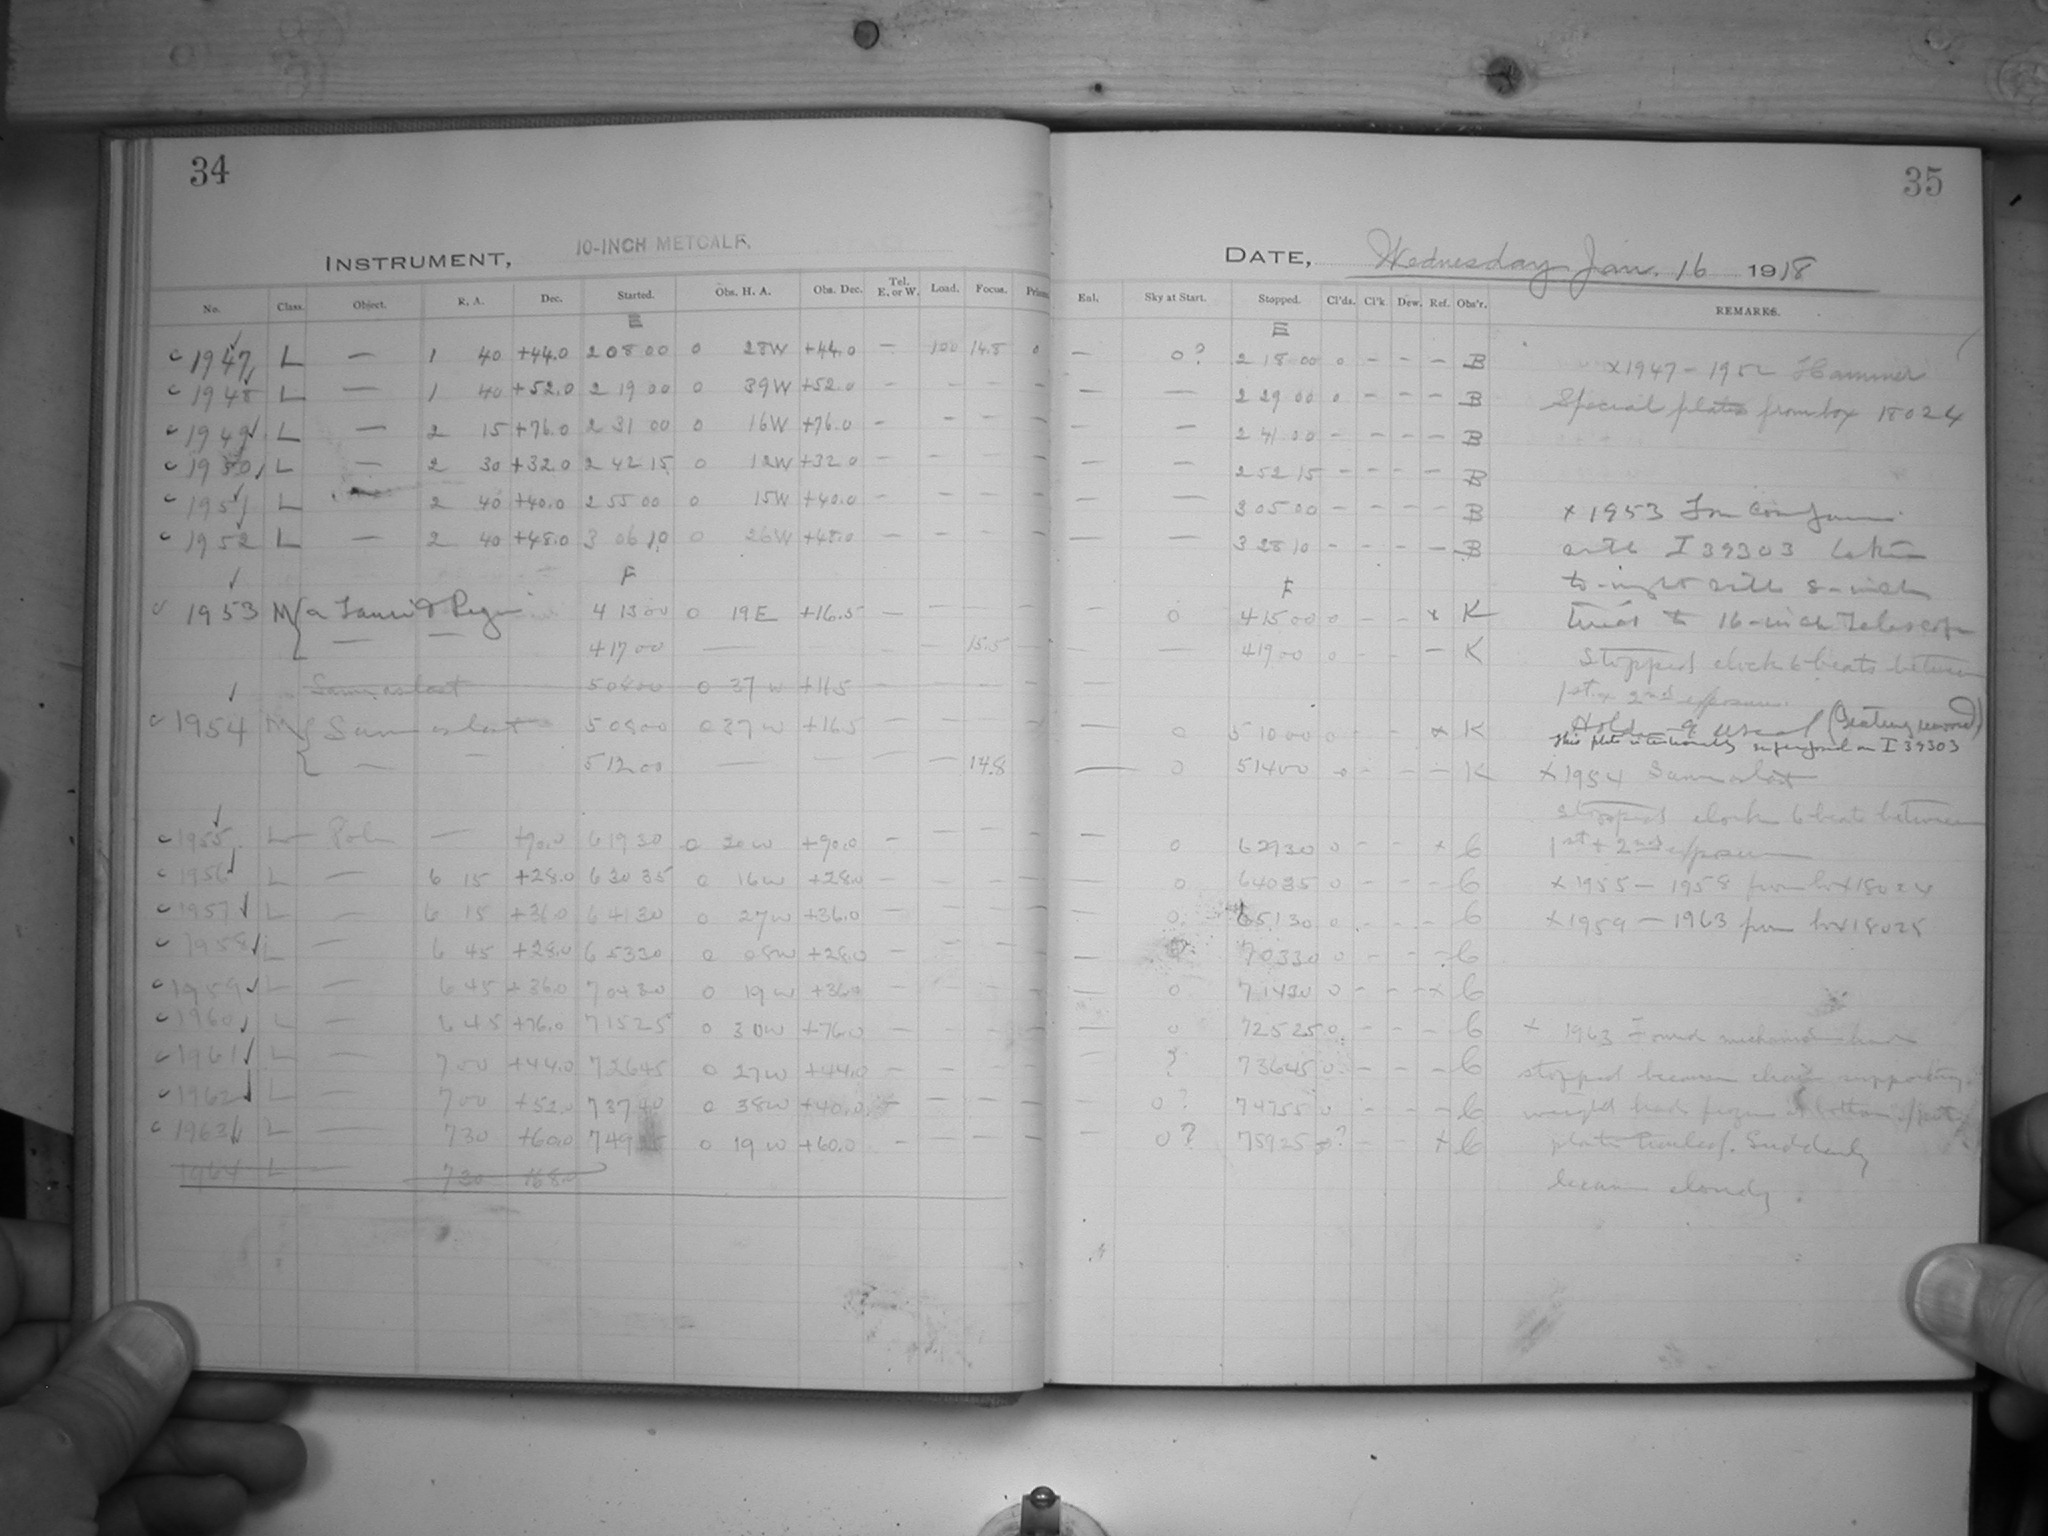 34
INSTRUMENT, 10-INCH METCALF.
No. Class. Object. R. A. Dec. Started. Obs. H. A. Obs. Dec. Tel. E. or W. Load. Focus.
E
1947 L — 1 40 +44.0 2 08 00 0 28W +44.0 — 100 14.8 0
1948 L — 1 40 +52.0 2 19 00 0 39W +52.0 - - - -
1949 L — 2 15 +76.0 2 31 00 0 16W +76.0 - - - -
1950 L — 2 30 +32.0 2 42 15 0 12W +32.0 - - - -
1951 L 2 40 +40.0 2 55 00 0 15W +40.0 - - - -
1952 L — 2 40 +48.0 3 06 10 0 26W +48.0 - - - -
F
1953 M a 4 13 00 0 19E +16.5 — — — —
— — 4 17 00 — - - 15.5 —
Same as last 5 04 00 0 37 W +16.5 — — — —
1954 M Same as last 5 08 00 0 37 W +16.5 — — — —
— — 5 12 00 — — — — 14.8
1955 L Pole — +90.0 6 19 30 0 20W +90.0 - - - -
1956 L — 6 15 +28.0 6 30 35 0 16W +28.0 - - - -
1957 L — 6 15 +36.0 6 41 30 0 27W +36.0 - - - -
1958 L — 6 45 +28.0 6 53 30 0 08W +28.0 - - - -
1959 L — 6 45 +36.0 7 04 30 0 19W +36.0 - - - -
1960 L — 6 45 +76.0 7 15 25 0 30W +76.0 - - - -
1961 L — 7 00 +44.0 7 26 45 0 27W +44.0 - - - -
1962 L — 7 00 +52.0 7 37 0 38W +40.0 - - - -
1963 L — 7 30 +60.0 7 49 0 19W +60.0 - - - -
1964 L — 7 30 +68.0
35
DATE, Wednesday Jan. 16 1918
Eal. Sky at Start. Stopped. Cl'ds. Cl'k. Dew. Ref. Obs'r. REMARKS.
E
— 0? 2 18 00 0 - - - B
— — 2 29 00 0 - - - B
— — 2 41 00 - - - - B
— — 2 52 15 - - - - B
— — 3 05 00 - - - - B
— — 3 28 10 - - - - B
F
0 4 15 00 0 - - x K
— — 4 19 00 0 - - - K
— 0 5 10 00 0 - - x K
— 0 5 14 00 0 - - - K
— 0 6 29 30 0 - - x C
— 0 6 40 35 0 - - - C
— 0 6 51 30 0 - - - C
— 7 03 30 0 - - - C
— 0 7 14 30 0 - - x C
— 0 7 25 25 0 - - - C
— ? 7 36 45 0 - - - C
— 0? 7 47 55 0 - - - C
— 0? 7 59 25 0? - - x C
x 1947 - 1952 Hammer
Special plates from box 18024
x 1953 For
with I 39303 taken
to-night with 8-inch
16-inch Telescope
Stopped clock 6 beats between
1st & 2nd exposure.
Holder 9 usual
This plate intentionally superposed on I 39303
x 1954 Same as last
Stopped clock 6 beats between
1st + 2nd exposure
x 1955 - 1958 from box 18024
x 1959 - 1963 from box 18025
x 1963 Found mechanism had
stopped because chain supporting
weight had frozen at bottom
plate trailed. Suddenly
became cloudy.